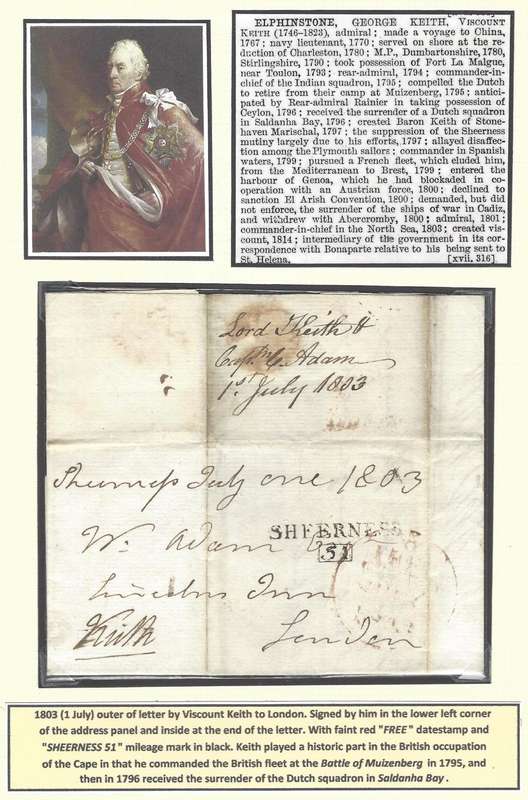 ELPHINSTONE, GEORGE KEITH, VISCOUNT
KEITH (1746–1823), admiral; made a voyage to China,
1767; navy lieutenant, 1770; served on shore at the re-
duction of Charleston, 1780; M.P., Dumbartonshire, 1780,
Stirlingshire, 1790; took possession of Fort La Malgue,
near Toulon, 1793; rear-admiral, 1794; commander-in-
chief of the Indian squadron, 1795; compelled the Dutch
to retire from their camp at Muizenberg, 1795; antici-
pated by Rear-admiral Rainier in taking possession of
Ceylon, 1796; received the surrender of a Dutch squadron
in Saldanha Bay, 1796; created Baron Keith of Stone-
haven Marischal, 1797; the suppression of the Sheerness
mutiny largely due to his efforts, 1797; allayed disaffec-
tion among the Plymouth sailors; commander in Spanish
waters, 1799; pursued a French fleet, which eluded him,
from the Mediterranean to Brest, 1799; entered the
harbour of Genoa, which he had blockaded in co-
operation with an Austrian force, 1800; declined to
sanction El Arish Convention, 1800; demanded, but did
not enforce, the surrender of the ships of war in Cadiz,
and withdrew with Abercromby, 1800; admiral, 1801;
commander-in-chief in the North Sea, 1803; created vis-
count, 1814; intermediary of the government in its cor-
respondence with Bonaparte relative to his being sent to
St. Helena. [xvii. 316]
Lord Keith
Adam
1st July 1803
Sheerness July one 1803
Wm Adam
SHEERNESS
51
Lincolns Inn
Keith
London
1803 (1 July) outer of letter by Viscount Keith to London. Signed by him in the lower left corner
of the address panel and inside at the end of the letter. With faint red "FREE" datestamp and
"SHEERNESS 51" mileage mark in black. Keith played a historic part in the British occupation
of the Cape in that he commanded the British fleet at the Battle of Muizenberg in 1795, and
then in 1796 received the surrender of the Dutch squadron in Saldanha Bay.